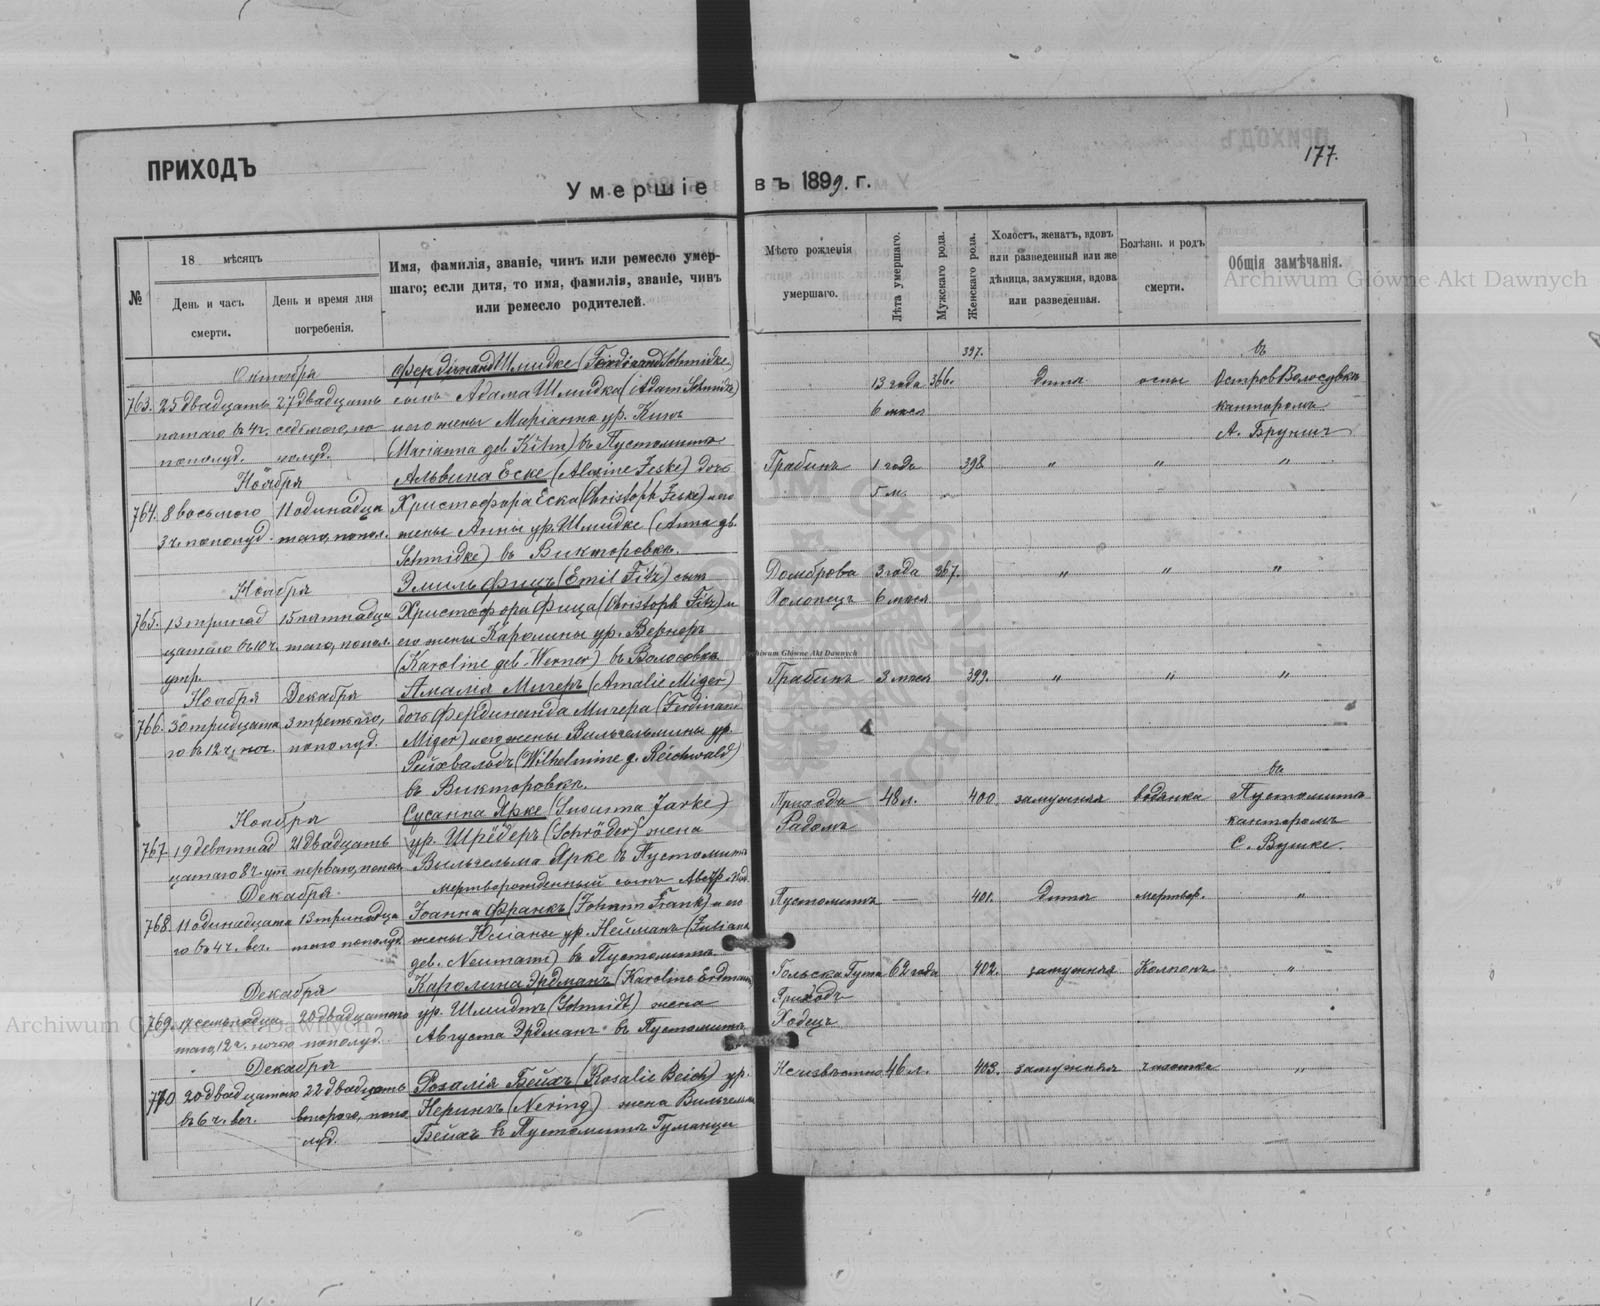 ПРИХОДЪ
177.
Умершіе въ 1899. г.
№
18 мѣсяцъ
День и часъ смерти.
День и время дня погребенія.
Имя, фамилія, званіе, чинъ или ремесло умер-
шаго; если дитя, то имя, фамилія, званіе, чинъ
или ремесло родителей.
Мѣсто рожденія
умершаго.
Лѣта умершаго.
Мужскаго рода.
Женскаго рода.
Холостъ, женатъ, вдовъ
или разведенный или же
дѣвица, замужняя, вдова
или разведенная.
Болѣзнь и родъ
смерти.
Общія замѣчанія.
Archiwum Główne Akt Dawnych
Октября
Фердинанд Шмидке (Ferdinand Schmidke)
397.
въ
763. 25 двадцать 27 двадцать
сынъ Адама Шмидке (Adam Schmidke)
13 года 366. Дитя оспы
пятаго въ 4 ч. седьмого, по
и его жены Маріанна ур. Кинъ
6 мѣся
канторомъ
пополуд. полуд.
(Marianna geb. Kühn) въ Пустомытъ
А. Брунш
Ноября
Альвина Еске (Alwine Jeske) дочь
Грабинъ 1 года 398 " " "
764. 8 восьмого 11 одинадца
Христофора Еска (Christoph Jeske) и его
5 м.
3 ч. пополуд. таго, попол.
жены Анны ур. Шмидке (Anna geb.
Schmidke) въ Викторовкѣ.
Ноября
Эмиль Фицъ (Emil Fitz) сынъ
Домброва 3 года 367. " " "
765. 13 тринад 15 пятнадца
Христофора Фица (Christoph Fitz) и
Холопецъ 6 мѣся
цатаго въ 10 ч. таго, попол.
его жены Каролины ур. Вернеръ
утр.
(Karoline geb. Werner) въ Волосовкѣ
Archiwum Główne Akt Dawnych
Ноября Декабря
Амалія Мигеръ (Amalie Miger)
Грабинъ 3 мѣся 399. " " "
766. 30 тридцата 3 третьяго,
дочь Фердинанда Мигера (Ferdinand
го въ 12 ч. ноч. пополуд.
Miger) и его жены Вильгельмины ур.
Рейхвальдъ (Wilhelmine g. Reichwald)
въ Викторовкѣ.
въ
Ноября
Сусанна Ярке (Susanna Jarke)
48 л. 400. замужняя водянка Пустомытъ
767. 19 девятнад 21 двадцать
ур. Шрёдеръ (Schröder) жена
Радомъ
канторомъ
цатаго 8 ч. ут. перваго, попол.
Вильгельма Ярке въ Пустомытъ
С. Вушке.
Декабря
мертворожденный сынъ
Пустомытъ — 401. Дитя мертвор. "
768. 11 одинадцата 13 тринадца
Іоанна Франкъ (Johann Frank) и его
го въ 4 ч. веч. таго пополуд.
жены Юліаны ур. Нейманъ (Juliana
geb. Neumann) въ Пустомытѣ
Декабря
Каролина Эрдманъ (Karoline Erdmann)
Гольска Гута 62 года 402. замужняя "
769. 17 семьнадца 20 двадцатаго
ур. Шмидтъ (Schmidt) жена
Приходъ
таго, 12 ч. ночью пополуд.
Августа Эрдманъ въ Пустомытъ
Ходецъ
Archiwum Główne Akt Dawnych
Декабря
Розалія Бейхъ (Rosalie Beich) ур.
Неизвѣстно 46 л. 403. замужняя чахотка "
770 20 двадцатаго 22 двадцать
Нерингъ (Nering) жена Вильгельма
въ 6 ч. веч. второго, попо
Бейхъ въ Пустомытъ Гуманци
луд.